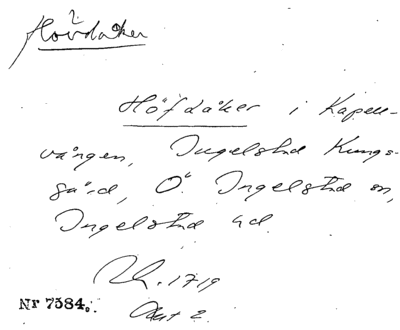 ?
Hövdåker
Höfdåker i Kapell-
vången, Ingelstad Kungs-
gård, Ö. Ingelstad sn,
Ingelstad hd.
1719
Nr 7384. Akt 2.